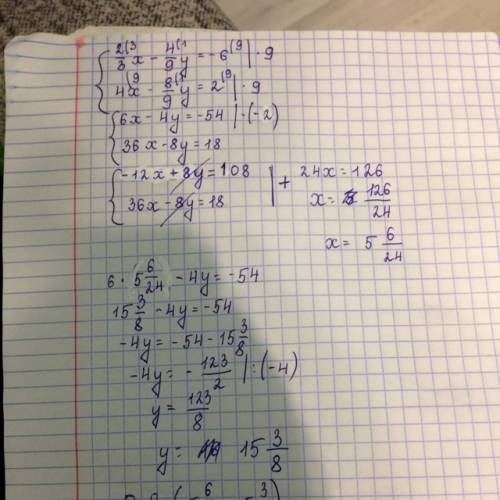 2/3 (3 x - 4/9 (1 y = -6 (9 | · 9
4x (9 - 8/9 (1 y = 2 (9 | · 9
6x - 4y = -54 | · (-2)
36x - 8y = 18
-12x + 8y = 108 | + 24x = 126
36x - 8y = 18 x = 126/24
x = 5 6/24
6 · 5 6/24 - 4y = -54
15 3/8 - 4y = -54
-4y = -54 - 15 3/8
-4y = - 123/2 | : (-4)
y = 123/8
y = 15 3/8